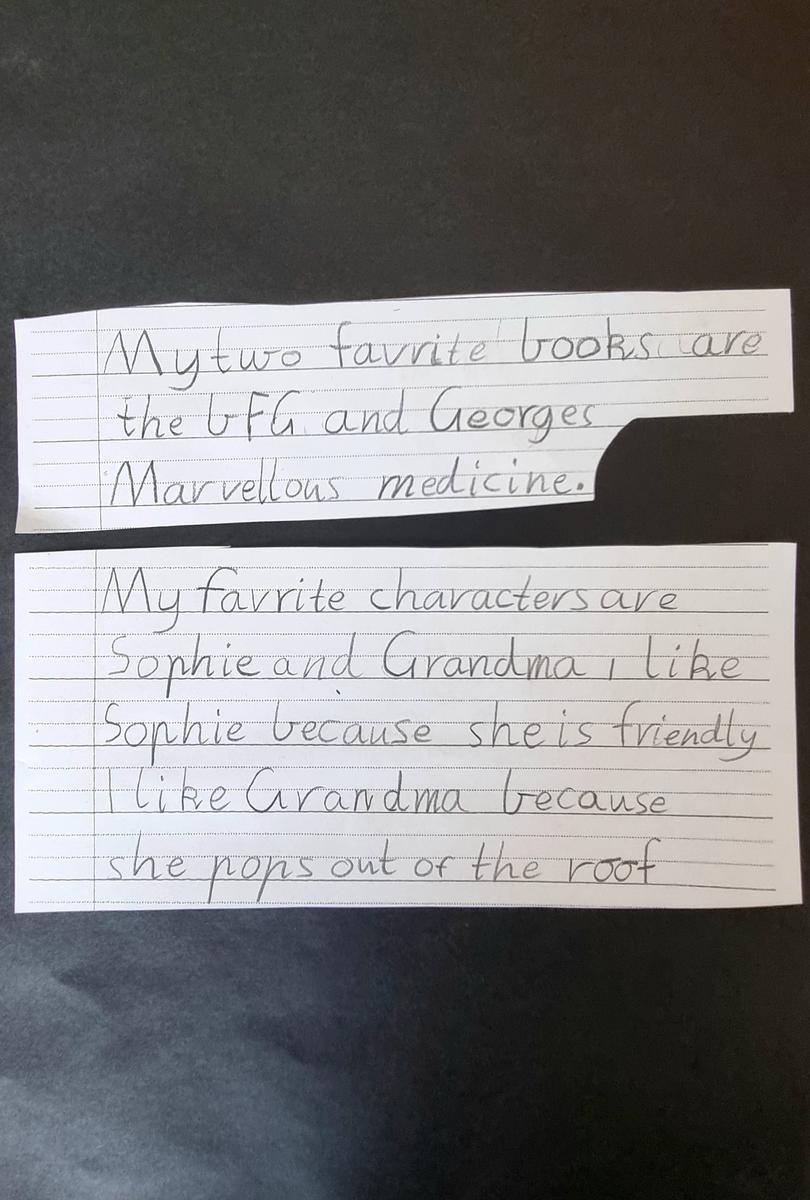 My two favrite books are
the bFG and Georges
Marvellous medicine.
My favrite characters are
Sophie and Grandma I like
Sophie because she is friendly
I like Grandma because
she pops out of the roof